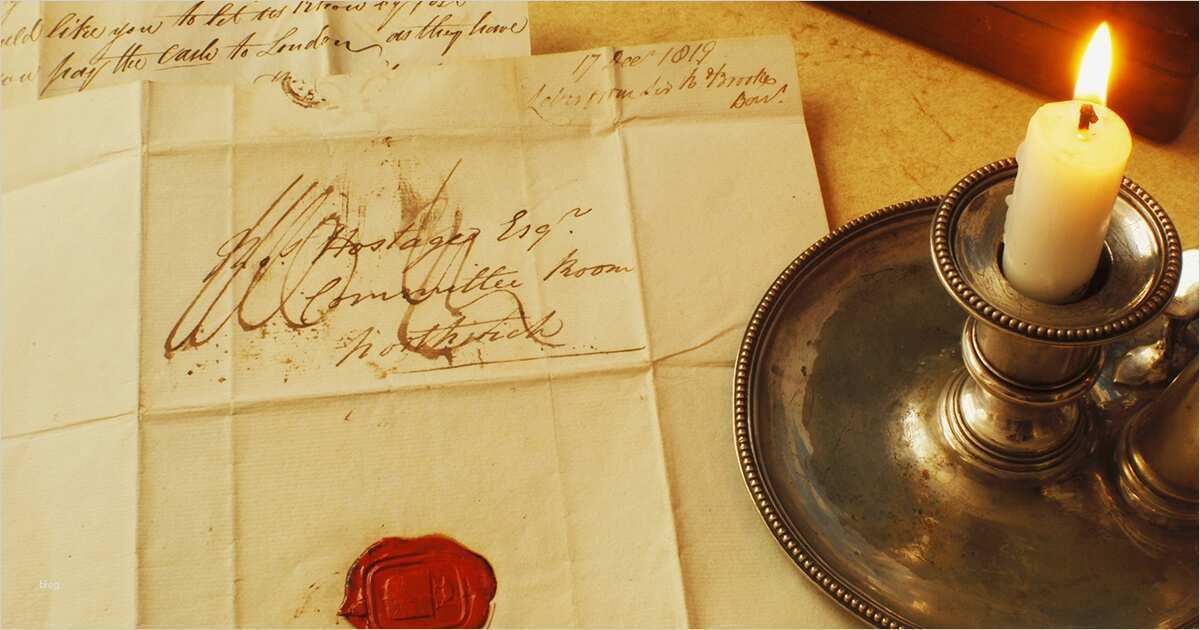 like you to let us know
pay the cash to London as they have
17 Dec 1819
Letter from Sir R Brooke
Bart.
Hostage Esqr.
Committee Room
Northwich
blog